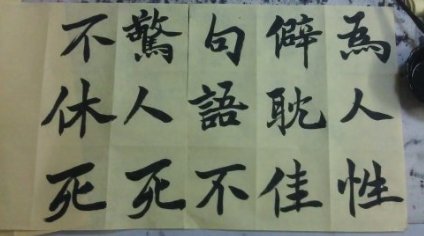 為人性
僻耽佳
句語不
驚人死
不休死